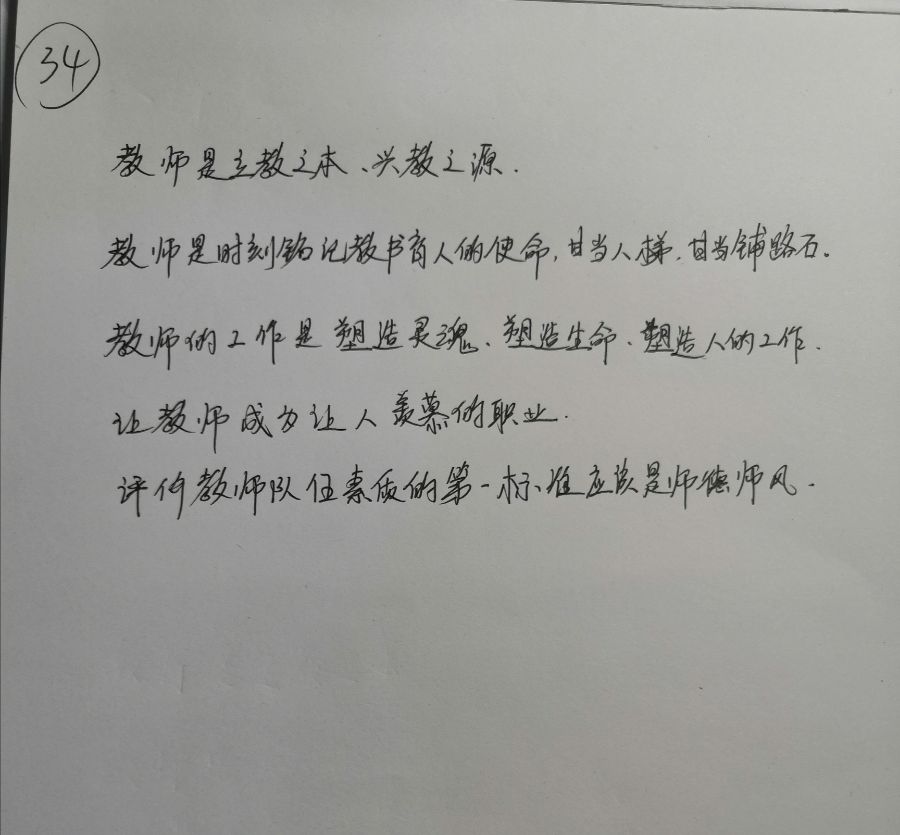 34
教师是立教之本、兴教之源.
教师是时刻铭记教书育人的使命,甘当人梯.甘当铺路石.
教师的工作是塑造灵魂、塑造生命、塑造人的工作.
让教师成为让人羡慕的职业.
评价教师队伍素质的第一标准应该是师德师风.